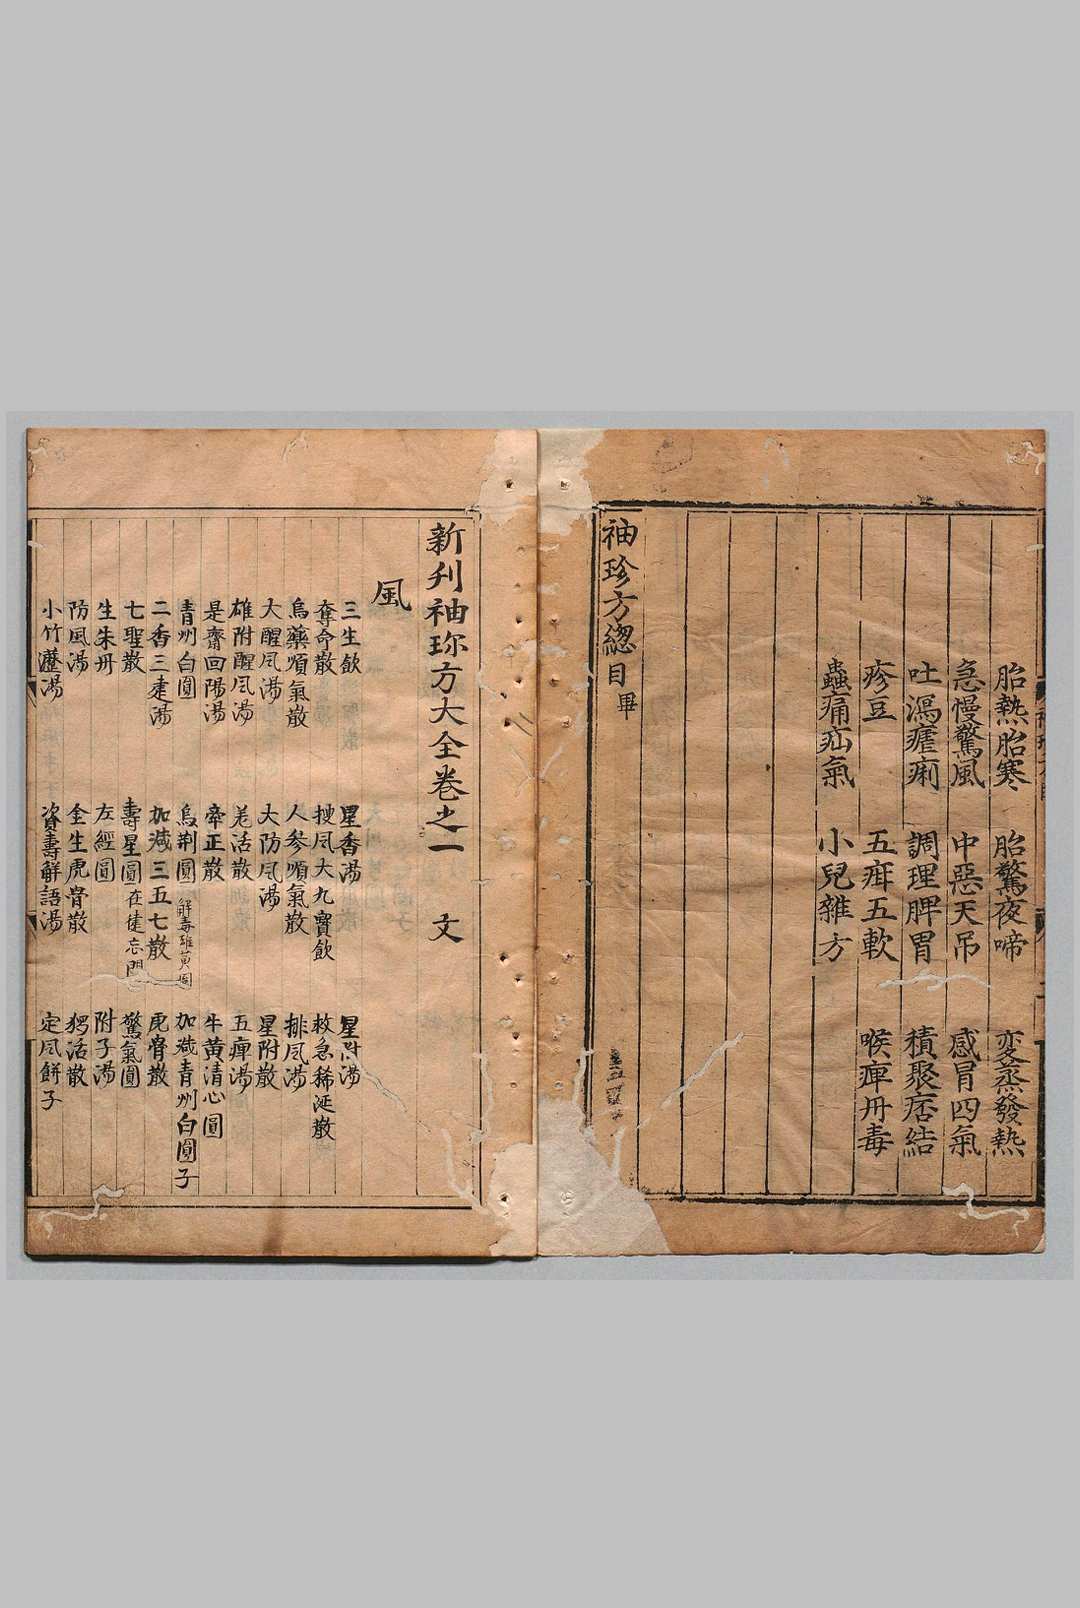 胎熱胎寒　胎驚夜啼　変蒸發熱
急慢驚風　中惡天吊　感冒四氣
吐瀉瘧痢　調理脾胃　積聚痞結
疹豆　五疳五軟　喉痺丹毒
蟲痛疝氣　小兒雜方
袖珍方緫目畢
新刋袖珎方大全卷之一　文
風
三生飲　星香湯　星附湯
奪命散　搜風大九寳飲　救急稀涎散
烏藥順氣散　人參順氣散　排風湯
大醒風湯　大防風湯　星附散
雄附醒風湯　羌活散　五痺湯
是齋回陽湯　帝正散　牛黃清心圓
青州白圓　烏荆圓　解毒雄黄圓　加减青州白圓子
二香三建湯　加减三五七散　虎骨散
七聖散　壽星圓在健忘門　驚氣圓
生朱丹　左經圓　附子湯
防風湯　金生虎骨散　獨活散
小竹瀝湯　資壽解語湯　定風餅子